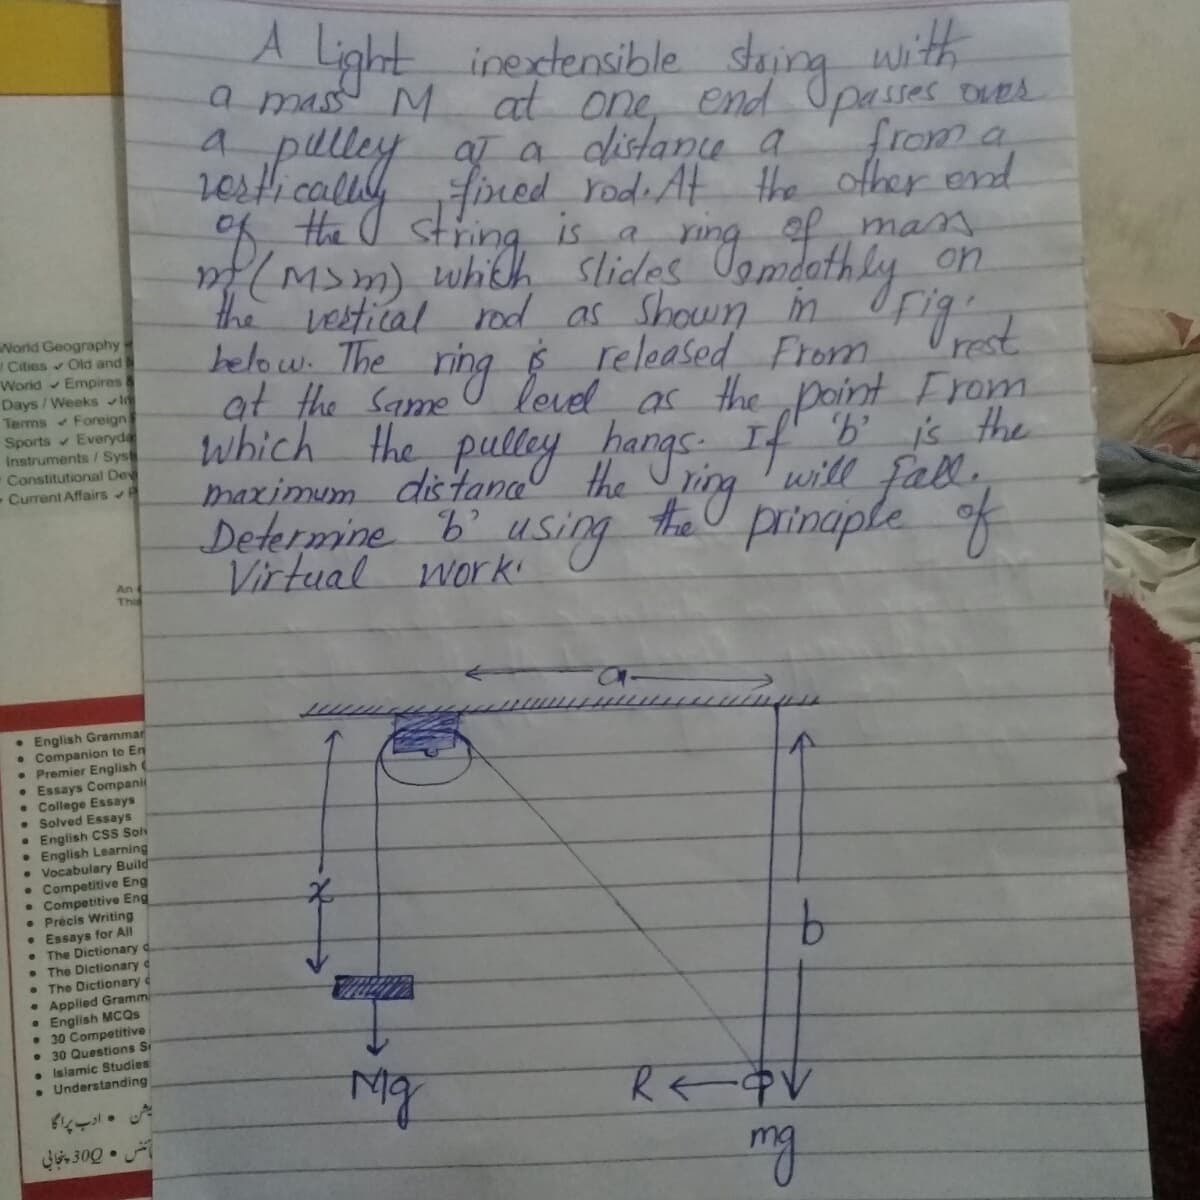 A Light inextensible string with
a mass M at one end passes over
a pulley at a distance a from a
vertically fixed rod. At the other end
of the string is a ring of mass
m (M>m) which slides smoothly on
the vertical rod as shown in Fig.
below. The ring is released From rest
at the same level as the point From
which the pulley hangs. If 'b' is the
maximum distance the ring will fall.
Determine 'b' using the principle of
Virtual work.
a
x
b
Mg
R
mg
World Geography
Cities ✓ Old and
World ✓ Empires
Days / Weeks ✓
Terms ✓ Foreign
Sports ✓
Instruments /
Constitutional
Current Affairs ✓
• English Grammar
• Companion to
• Premier English
• Essays
• College Essays
• Solved Essays
• English CSS
• English Learning
• Vocabulary
• Competitive
• Competitive
• Précis Writing
• Essays for All
• The Dictionary
• The Dictionary
• The Dictionary
• Applied
• English MCQs
• 30 Competitive
• 30 Questions
• Islamic Studies
• Understanding